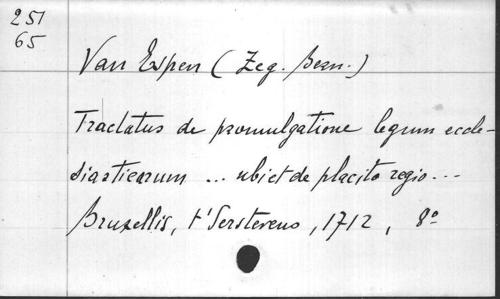 251
65
Van Espen (Zeg. Bern.)
Tractatus de promulgatione legum eccle-
siasticarum ... ubi et de placito regio ...
Bruxellis, t'Serstevens, 1712, 8°